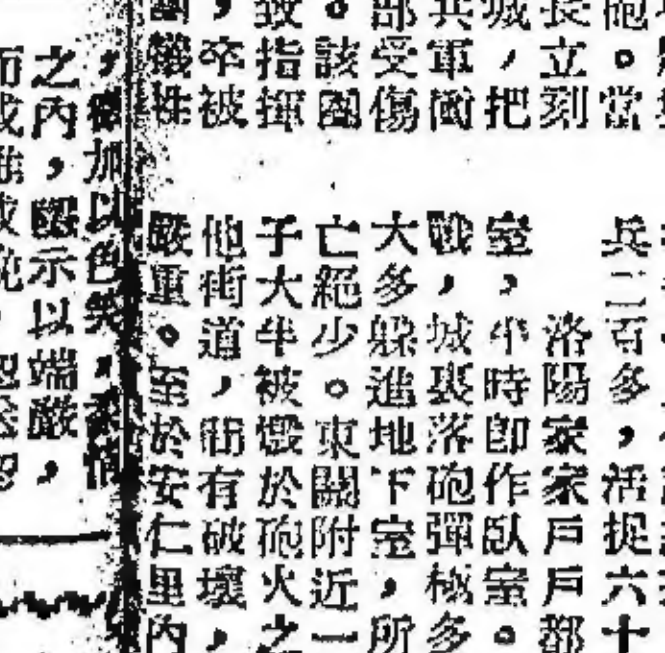 砲。當
長立刻
城，把
共軍
部受傷
。該團
致指揮
，卒被
團犧牲
兵二百多，活捉六十
洛陽家家戶戶都
室，平時即作臥室。
戰，城裏落砲彈極多
大多躲進地下室，所
亡絕少。東關附近一
子大半被燬於砲火之
他街道，有破壞，
嚴重。至於安仁里內
加以色笑，
之內，示以端嚴，